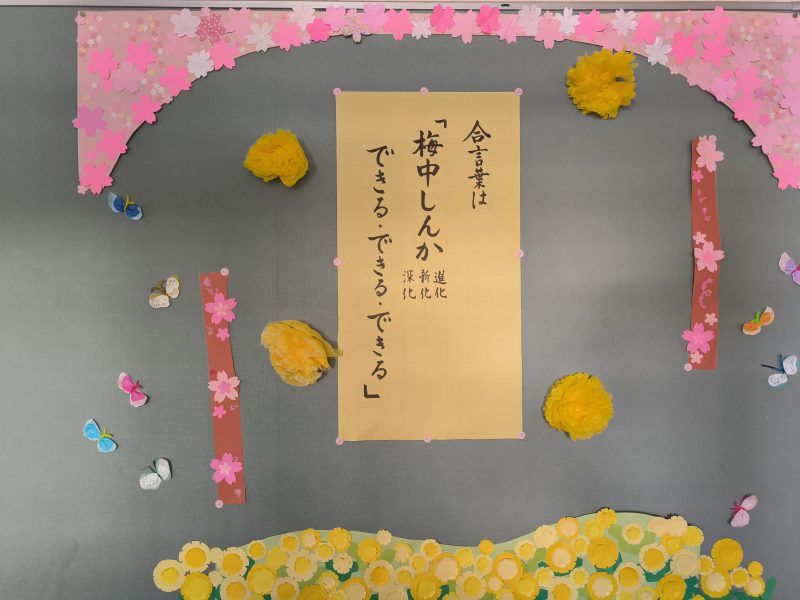 合言葉は
「梅中しんか
進化
新化
深化
できる・できる・できる」